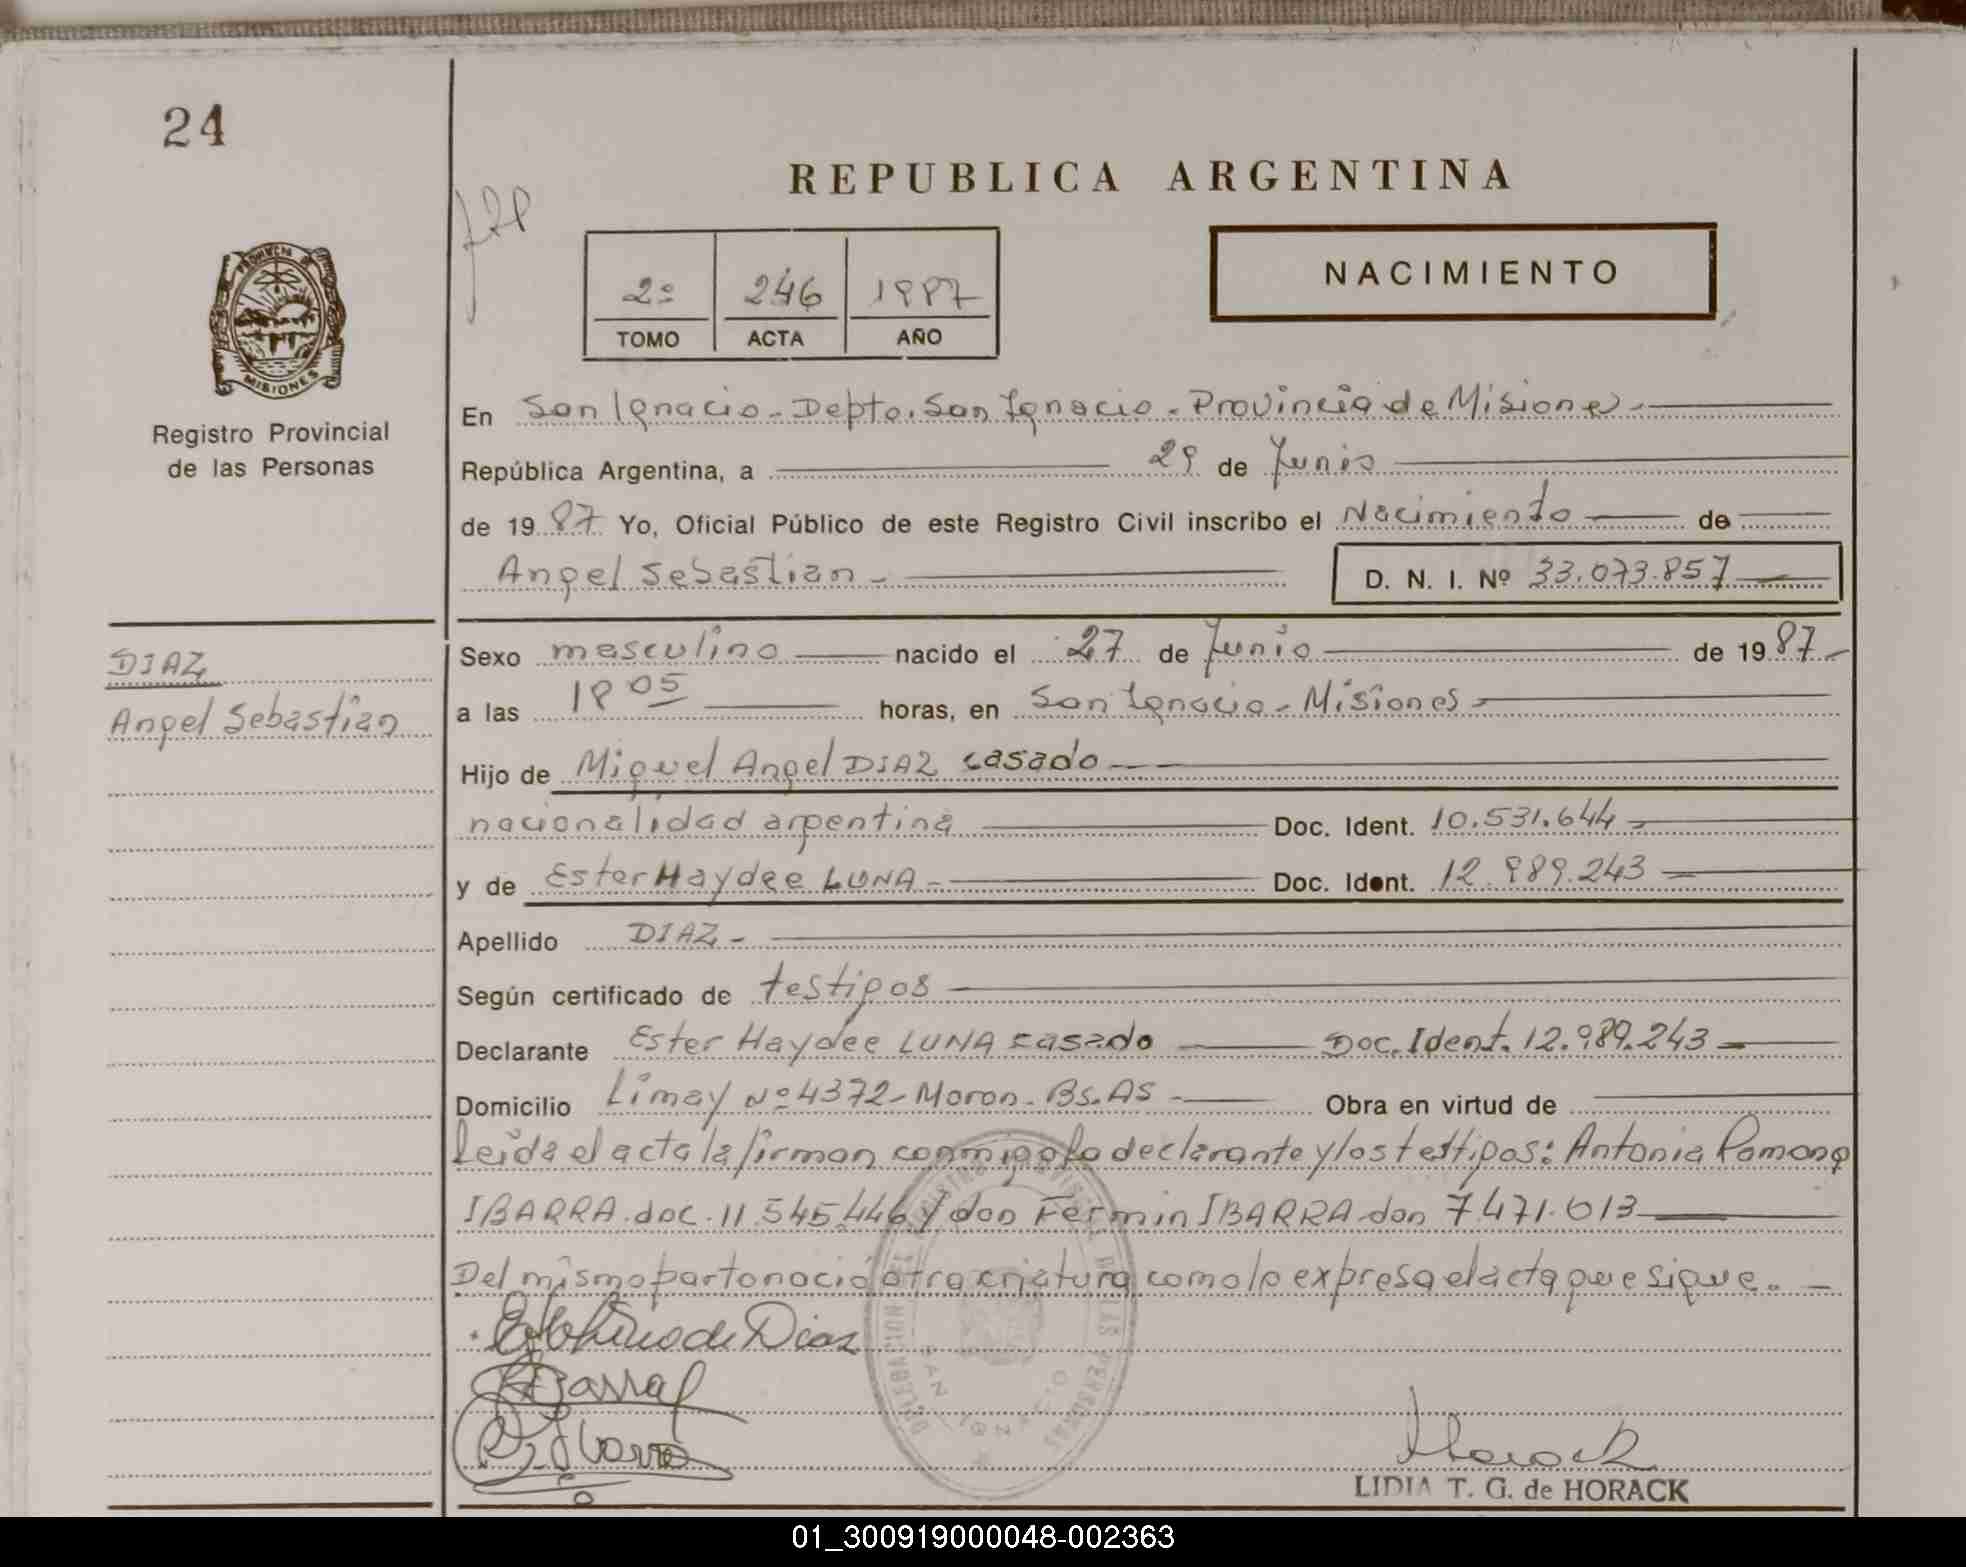 24
REPUBLICA ARGENTINA
2º 246 1987
TOMO ACTA AÑO
NACIMIENTO
PROVINCIA DE
MISIONES
Registro Provincial
de las Personas
En San Ignacio - Depto. San Ignacio - Provincia de Misiones -
República Argentina, a 29 de Junio
de 1987 Yo, Oficial Público de este Registro Civil inscribo el Nacimiento de
Angel Sebastian - D. N. I. Nº 33.073.857
DIAZ
Angel Sebastian
Sexo masculino nacido el 27 de Junio de 1987 -
a las 18 05 horas, en San Ignacio - Misiones -
Hijo de Miguel Angel DIAZ casado -
nacionalidad argentina Doc. Ident. 10.531.644 -
y de Ester Haydee LUNA - Doc. Ident. 12.989.243
Apellido DIAZ -
Según certificado de testigos
Declarante Ester Haydee LUNA casado Doc. Ident. 12.989.243 -
Domicilio Limay Nº 4372 - Moron - Bs. AS - Obra en virtud de
Leida el acta la firman conmigo la declarante y los testigos: Antonia Ramona
IBARRA doc. 11.545.446 y don Fermin IBARRA don 7.471.013
Del mismo parto nació otra criatura como lo expresa el acta que sigue. -
de Diaz
Ibarra
Horack
LIDIA T. G. de HORACK
01_300919000048-002363